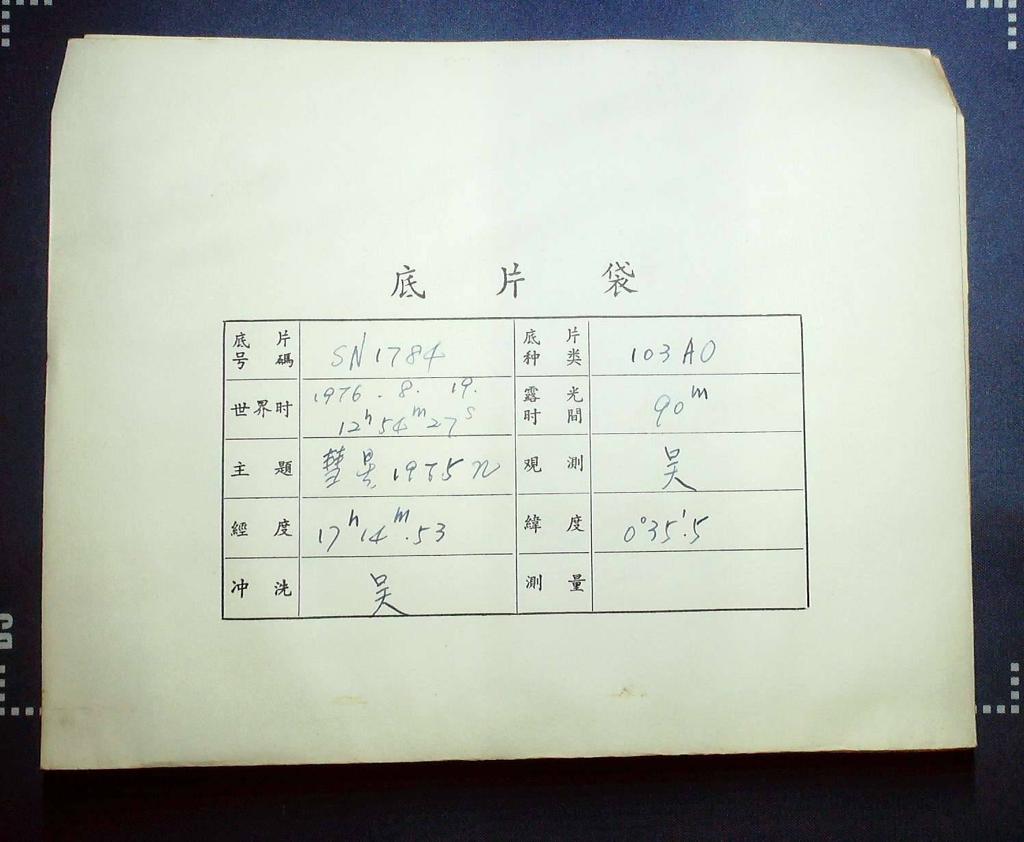 底片袋
底片号碼 SN1784 底片种类 103AO
世界时 1976.8.19. 12h54m27s 露光时間 90m
主題 彗星1975n 观測 吴
經度 17h14m.53 緯度 0°35'.5
冲洗 吴 測量